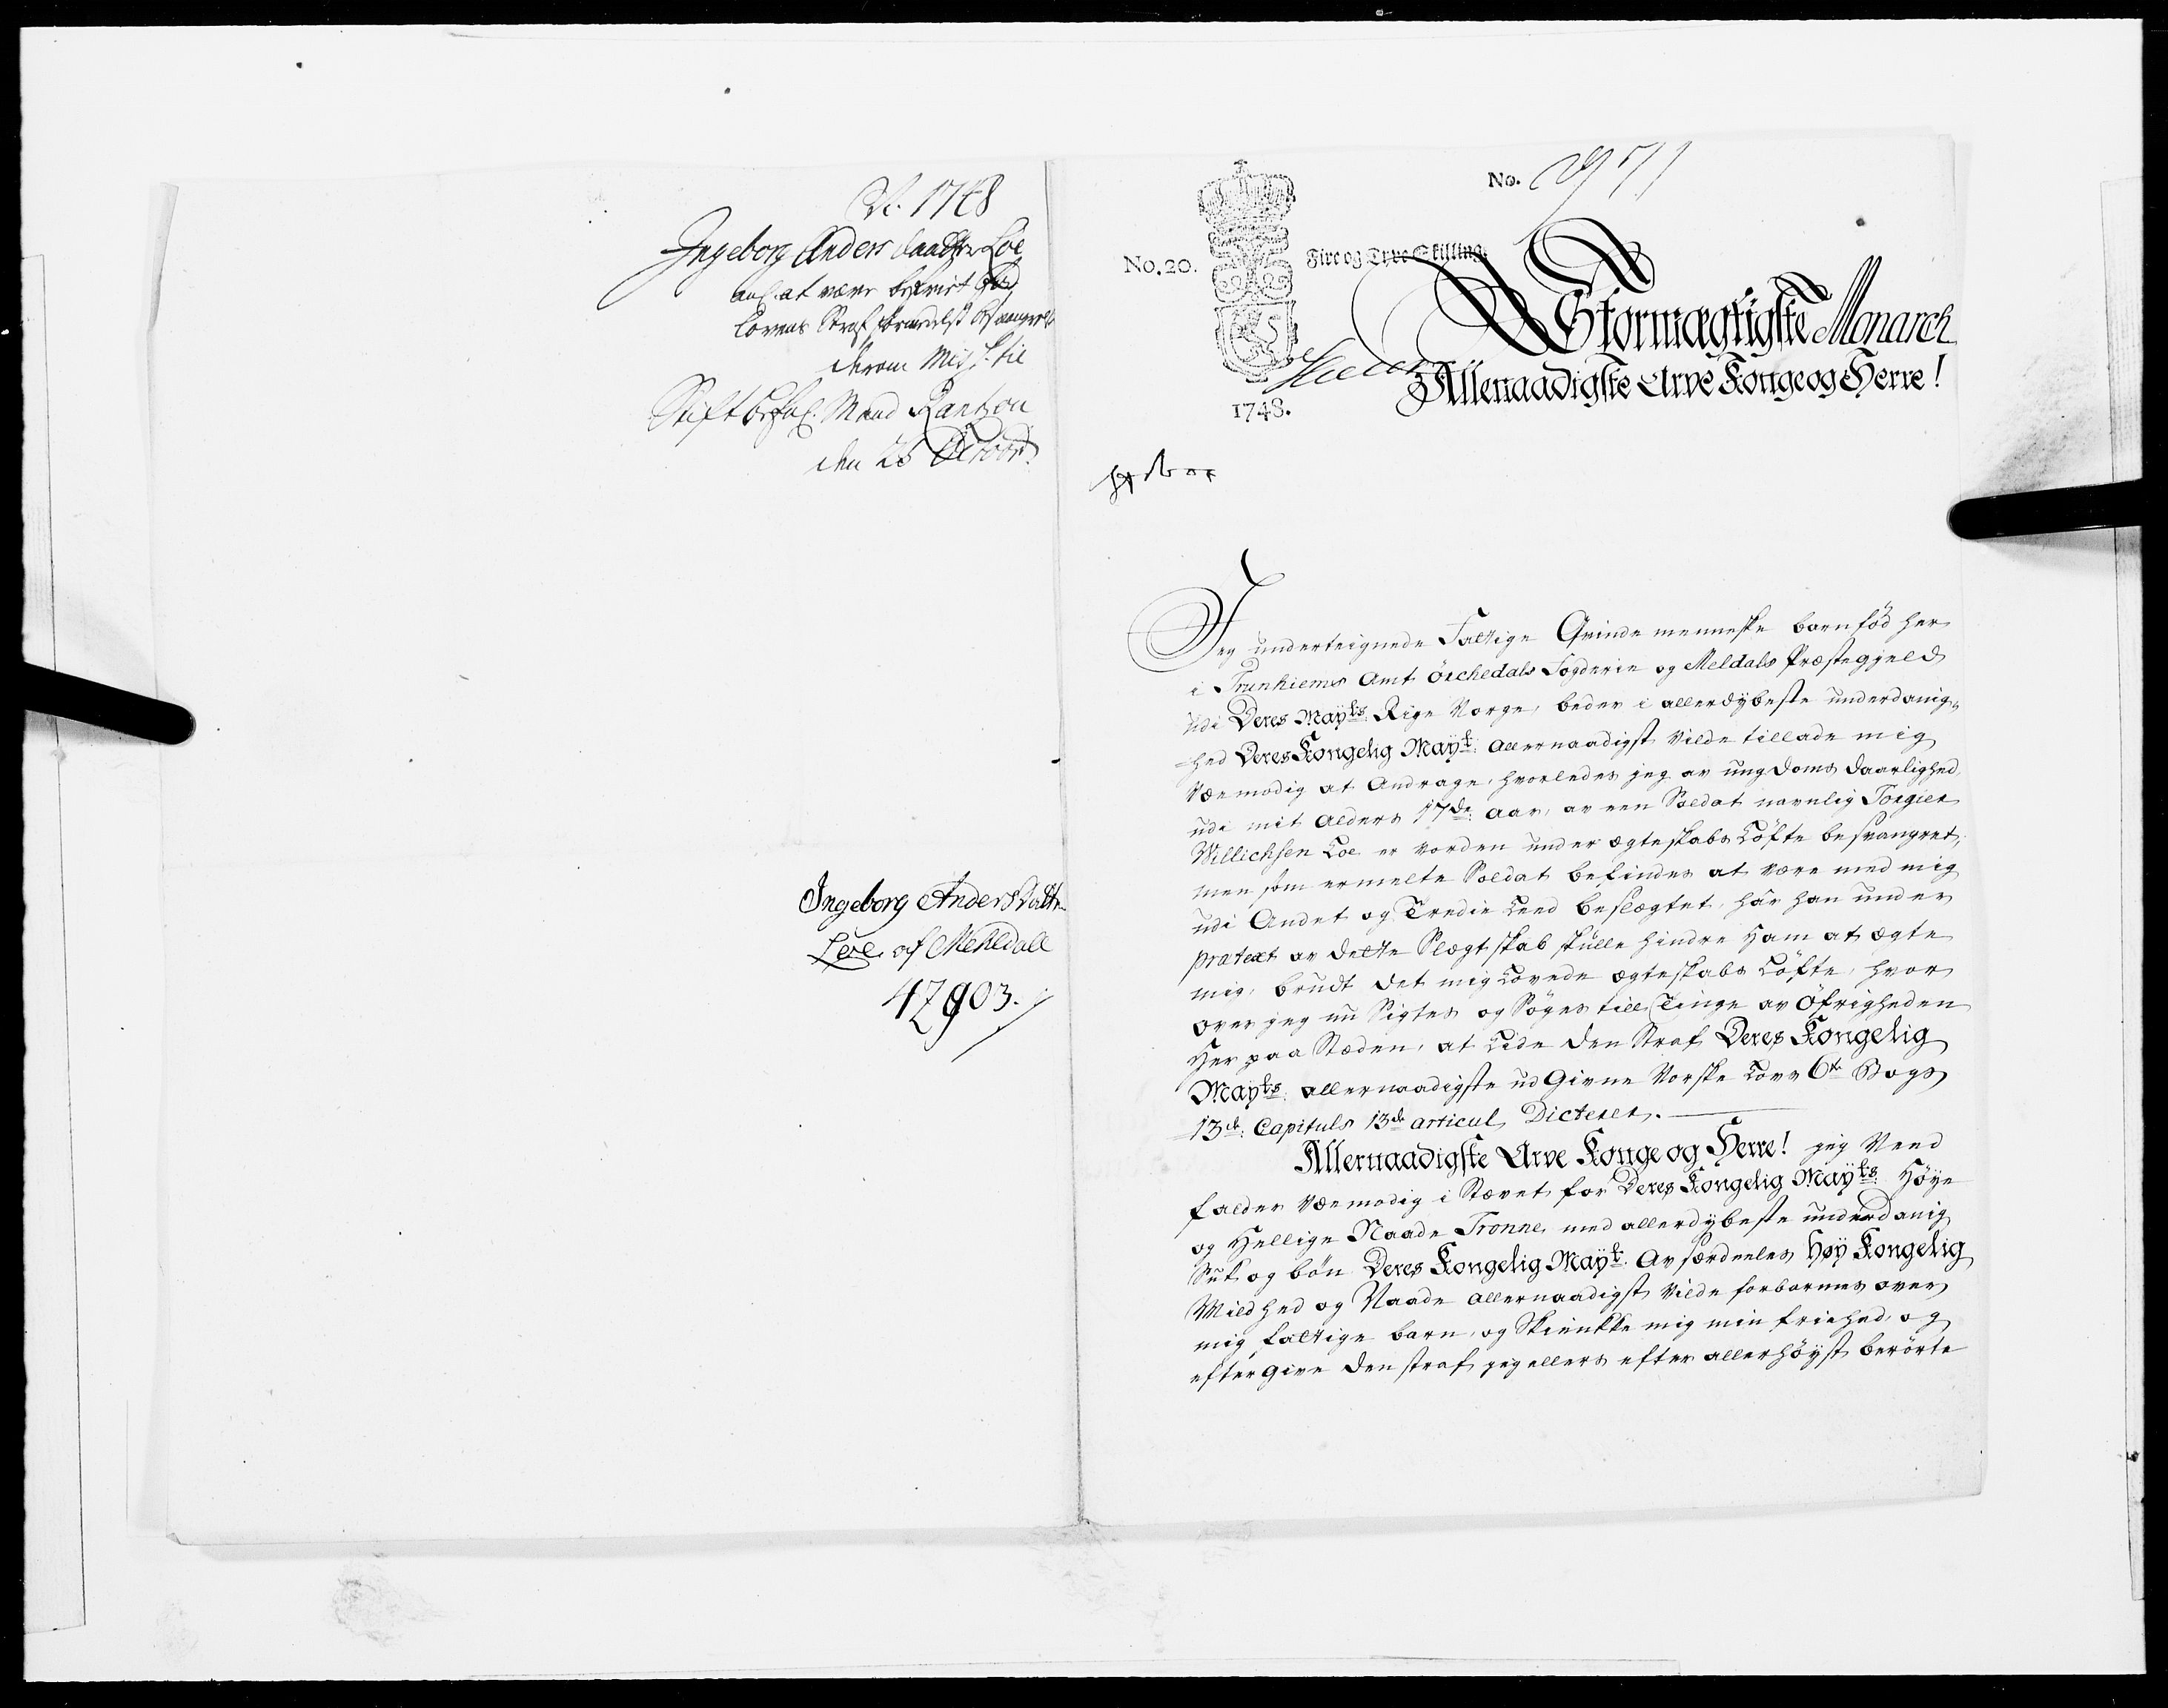 Ao. 1748
Ingeborg Anders daatter Loe
anl. at være befriet for
Lovens Straf formedelst Besvangrelse
derom Miss. til
Stiftbefal. Mand Rantzou
den 25 Octobr.
Ingeborg Andersdattr.
Loe, af Mehldall
No. 2971
No. 20.
Fire og Tyve Skilling.
1748.
Stormægtigste Monarch
Allernaadigste Arve Konge og Herre!
Jeg underteignede Fattige Qvinde menneske barnfød her
i Trunhiems Amt Örchedals Fogderie og Meldals Præstegjeld
udi Deres Mayts Rige Norge, beder i allerdybeste underdanig-
hed Deres Kongelig Mayt: allernaadigst vilde tillade mig
Veemodig at Andrage, hvorledes jeg av ungdoms daarlighed,
udi mit Alders 17de: aar, av een Soldat navnlig Torgier
Willichsen Loe er vorden under ægteskabs Löfte besvangret,
men som ermelte Soldat befindes at være med mig
udi Andet og Tredie Leed beslægtet, hâr han under
prætext av dette Slægtskab skulle hindre Ham at ægte
mig, brudt det mig Lovede ægteskabs Löfte, hvor
over jeg nu Sigtes og Söges till Tinge av Öfrigheden
Her paa Stæden, at Lide den Straf Deres Kongelig
Mayts: allernaadigste ud Givne Norske Lovs 6te Bogs
13de: Capituls 13de articul, Dicterer.
Allernaadigste Arve Konge og Herre! jeg Need
falder Veemodig i Støvet for Deres Kongelig Mayts: Höye
og Hellige Naade Tronne, med allerdybeste underdanig
Suk og bön Deres Kongelig Mayt: Av særdeeles Høy Kongelig
Mildhed og Naade allernaadigst vilde forbarmes over
mig fattige barn, og Skienkke mig min friehed, og
efter give den straf, jeg ellers efter allerhöyst berörte